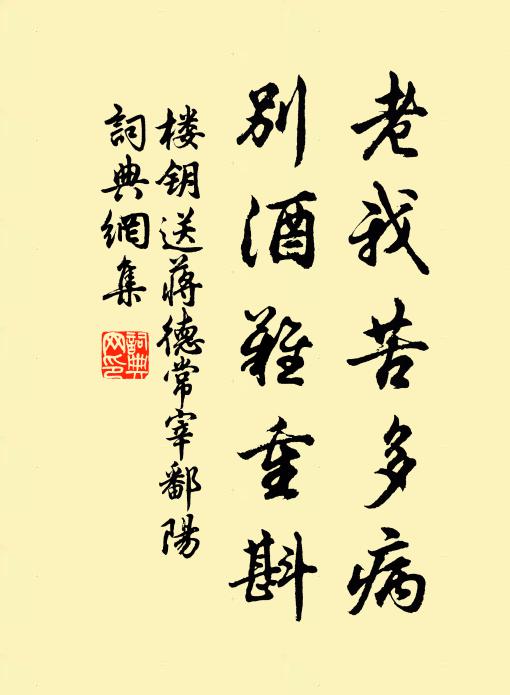 老我苦多病
别酒難重斟
楼钥送蔣德常宰鄱陽
詞典網集
詞典网印